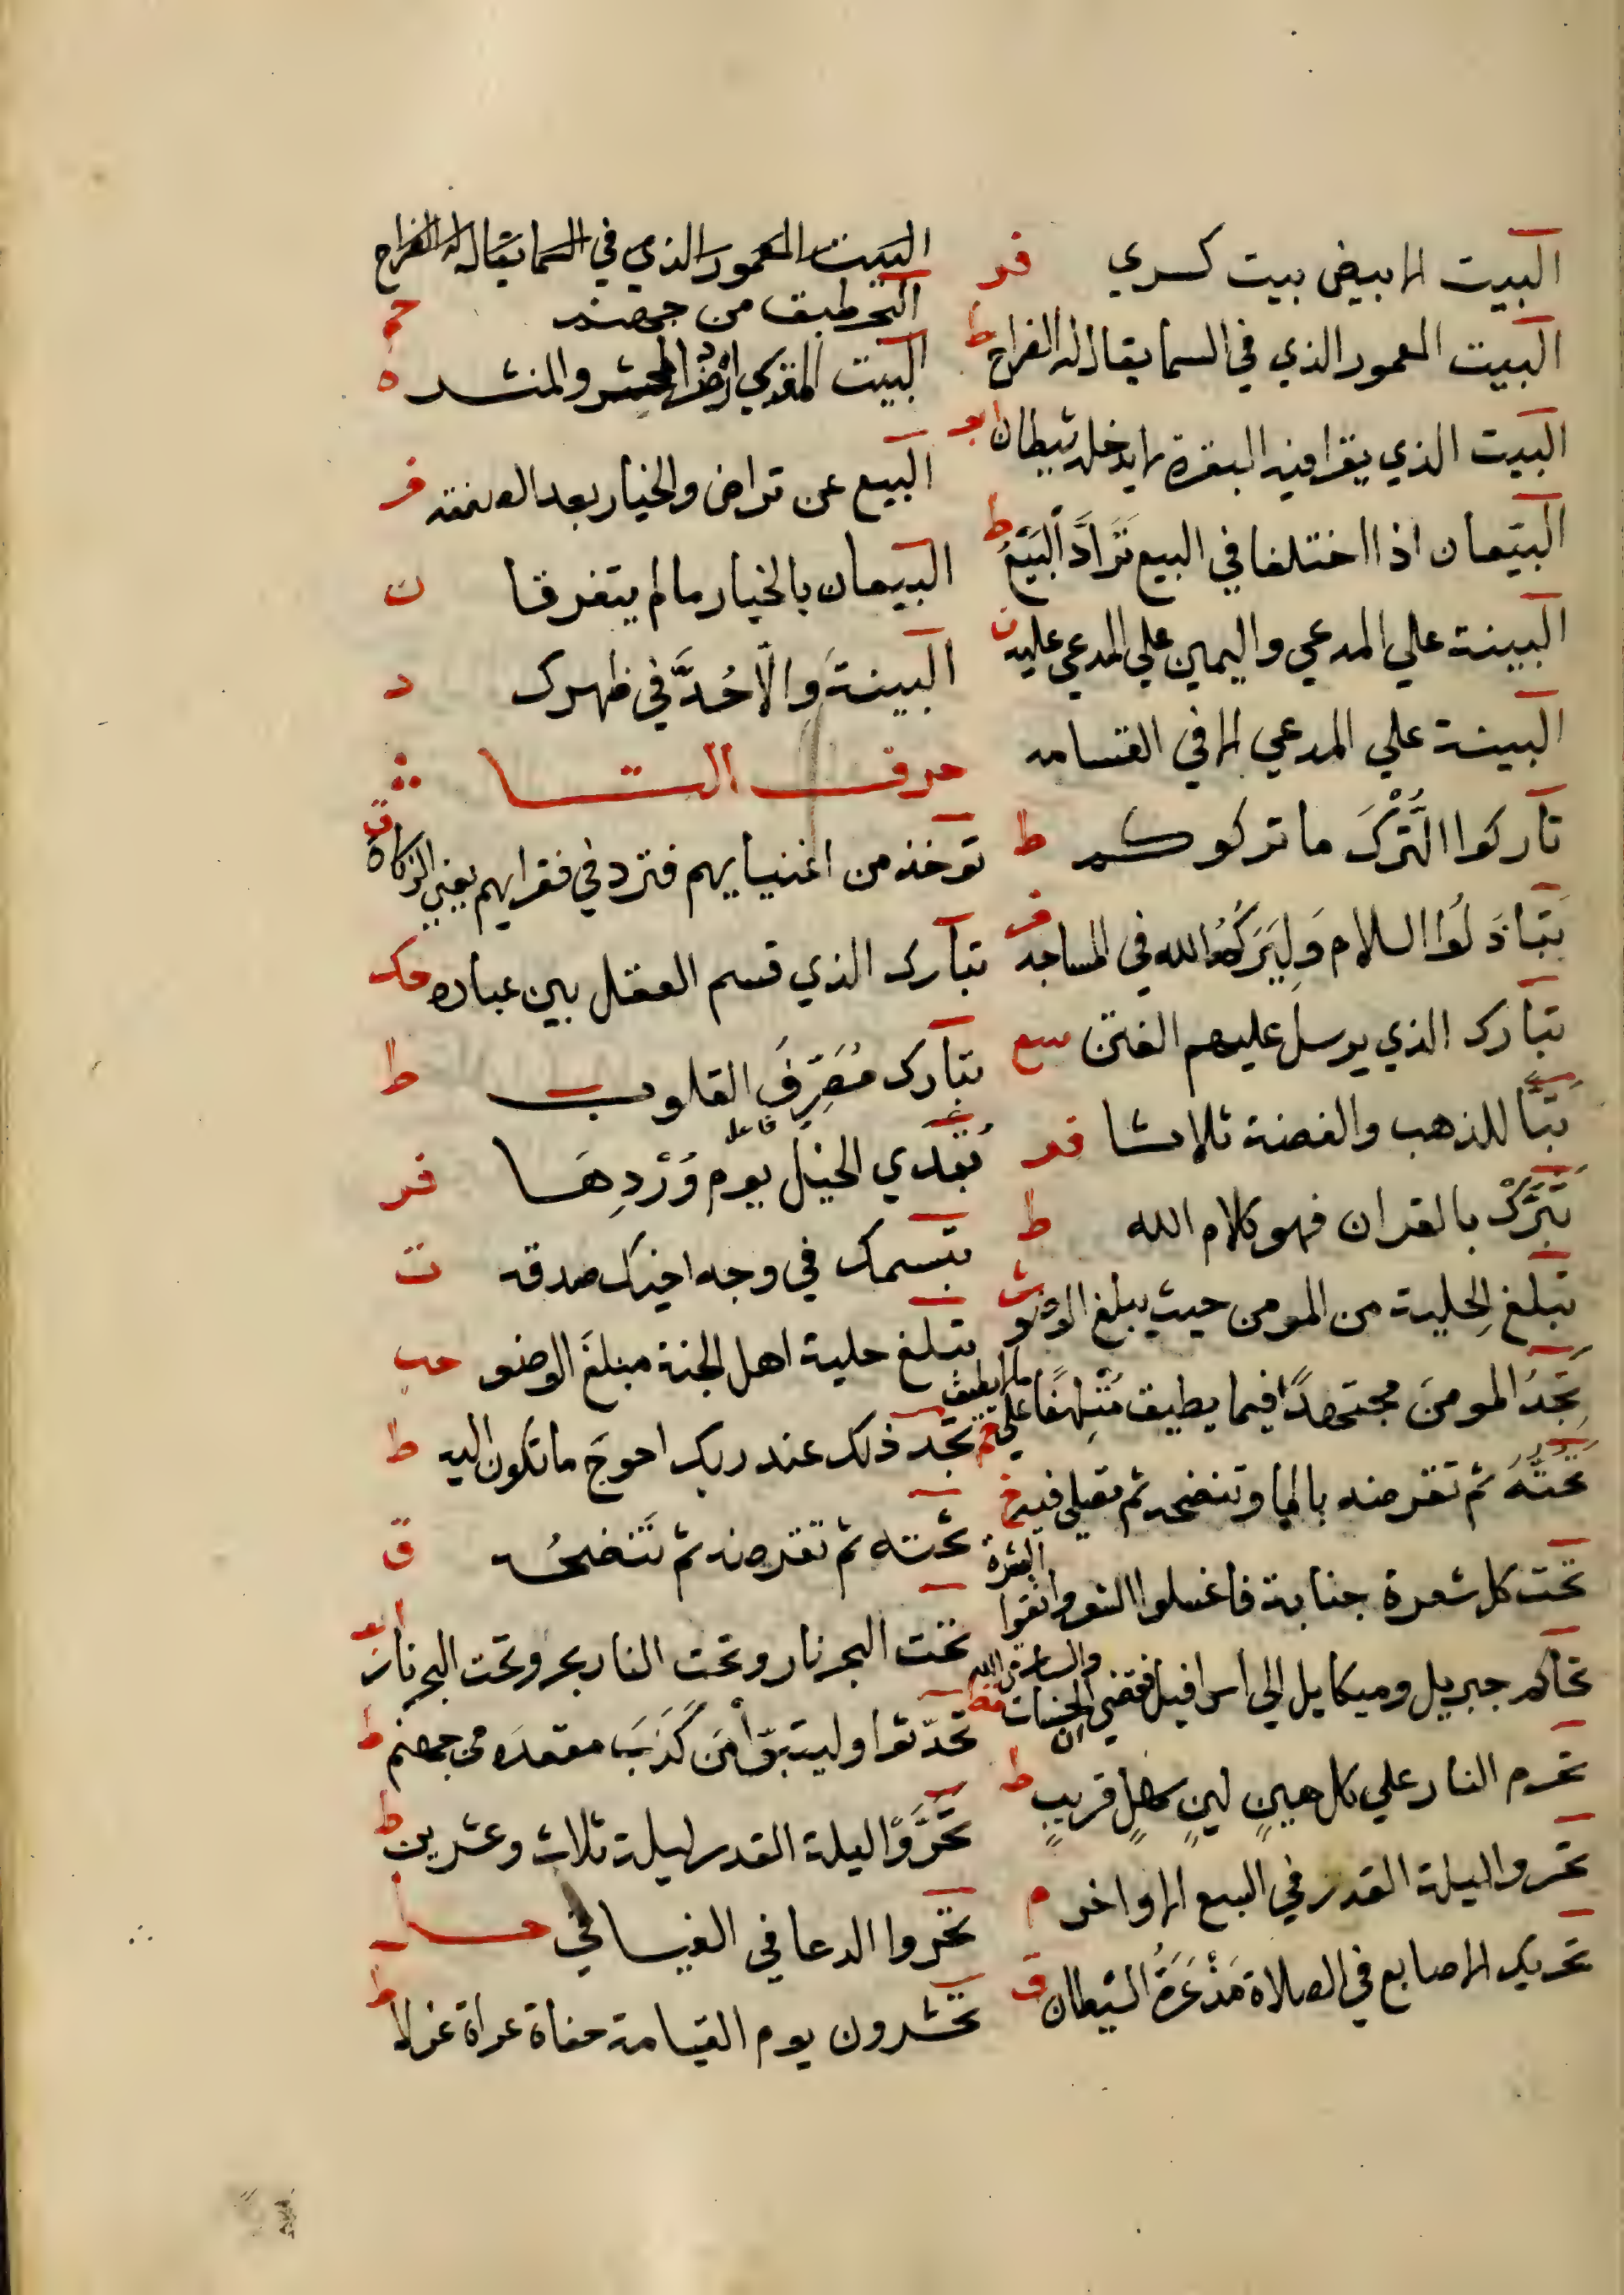 البيت الابيض بيت كسري فر
البيت المعمور الذي في السما يقال له الضراح ط
البيت الذي يقرا فيه البقرة لا يدخله شيطان بو
البيّعان اذا اختلفا في البيع تَرَادَّ البَيْعَ ط
البينة علي المدعي واليمين علي المدعي عليه ت
البينة علي المدعي الا في القسامه
تاركوا التُّرْكَ ما تركوكم ط
تَبَاذَلُوا السلام وليَرَكُمُ الله في المساجد فر
تبارك الذي يرسل عليهم الفتن سع
تَبًّا للذهب والفضة ثلاثا فر
تَبَرَّكْ بالقران فهو كلام الله ط
تبلغ الحِلية من المومن حيث يبلغ الوضو ش
تَجِدُ المومنَ مجتهدًا فيما يطيق مُتَلهفًا علي ما لا يطيق حم
تَحُتُّهُ ثم تقرصه بالما وتنضحه ثم تصلي فيه خ
تحت كل شعرة جنابة فاغسلوا الشعر وانقوا البشرة
تحاكم جبريل وميكايل الي اسرافيل فقضي ان الحسنات والسيئات من الله قط
تحرم النار علي كل هينٍ لينٍ سهلٍ قريبٍ ط
تحروا ليلة القدر في السبع الاواخر م
تحريك الاصابع في الصلاة مَذْعَرَةُ الشيطان ق
البيت المعمور الذي في السما يقال له الضراح
البحر طبق من جهنم حم
البيت المقدس ارض المحشر والمنشر ه
البيع عن تراض والخيار بعد الصفقة فر
البيعان بالخيار ما لم يتفرقا ت
البينةَ والَّا حُدَّ في ظهرك د
حرف التا
توخذ من اغنيايهم فترد في فقرايهم يعني الزكاة ق
تبارك الذي قسم العقل بين عباده حك
تبارك مُصَرِّفَ القلوب ط
تُبَدَّي الخيل يوم وُرْدِهَا فر
تبسمك في وجه اخيك صدقه ت
تبلغ حلية اهل الجنة مبلغَ الوضو حب
تجد ذلك عند ربك احوجَ ما تكون اليه ط
تحته ثم تقرصه ثم تَنضحُه ق
تحت البحر نار وتحت النار بحر وتحت البحر نار بو
تحدّثوا وليتبوّأ مَن كَذَبَ مقعدَه من جهنم ط
تحرَّوْا ليلة القدر ليلة ثلاث وعشرين ط
تحروا الدعا في الفيافي حل
تحشرون يوم القيامة حفاة عراة غرلا ط